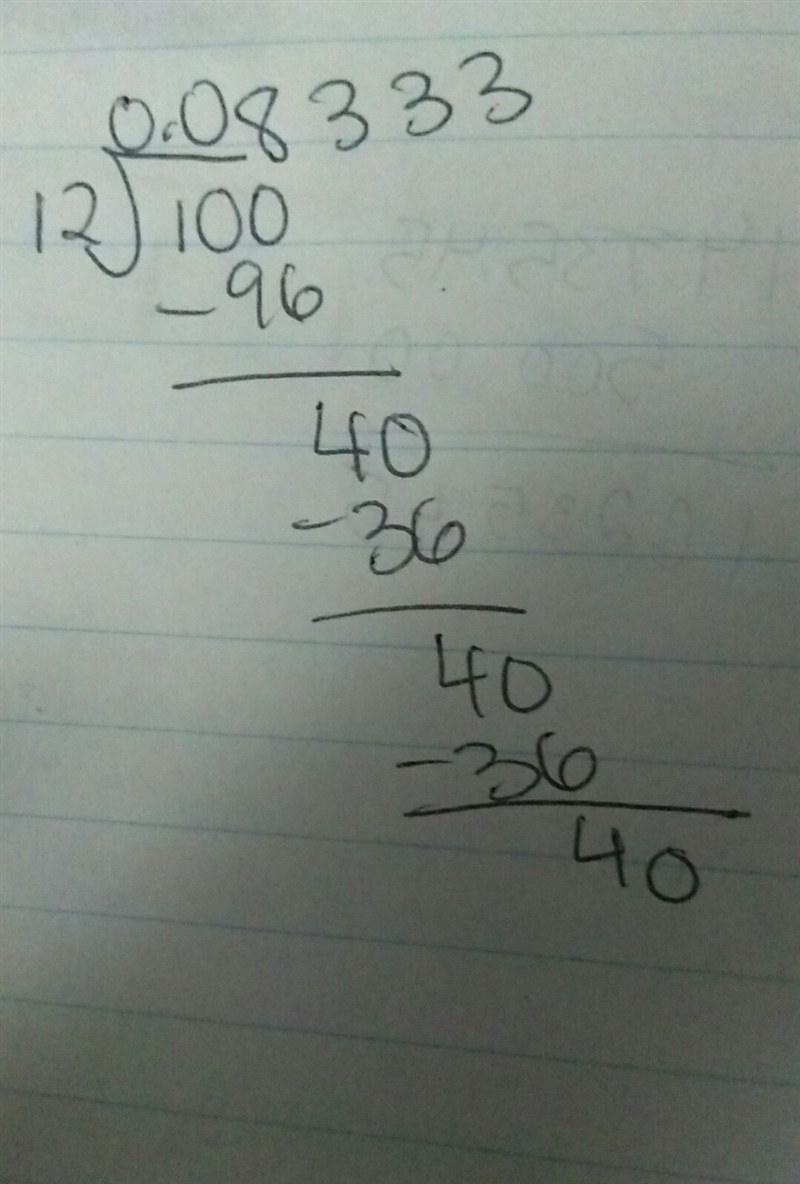 0.08333
12)100
-96
40
-36
40
-36
40